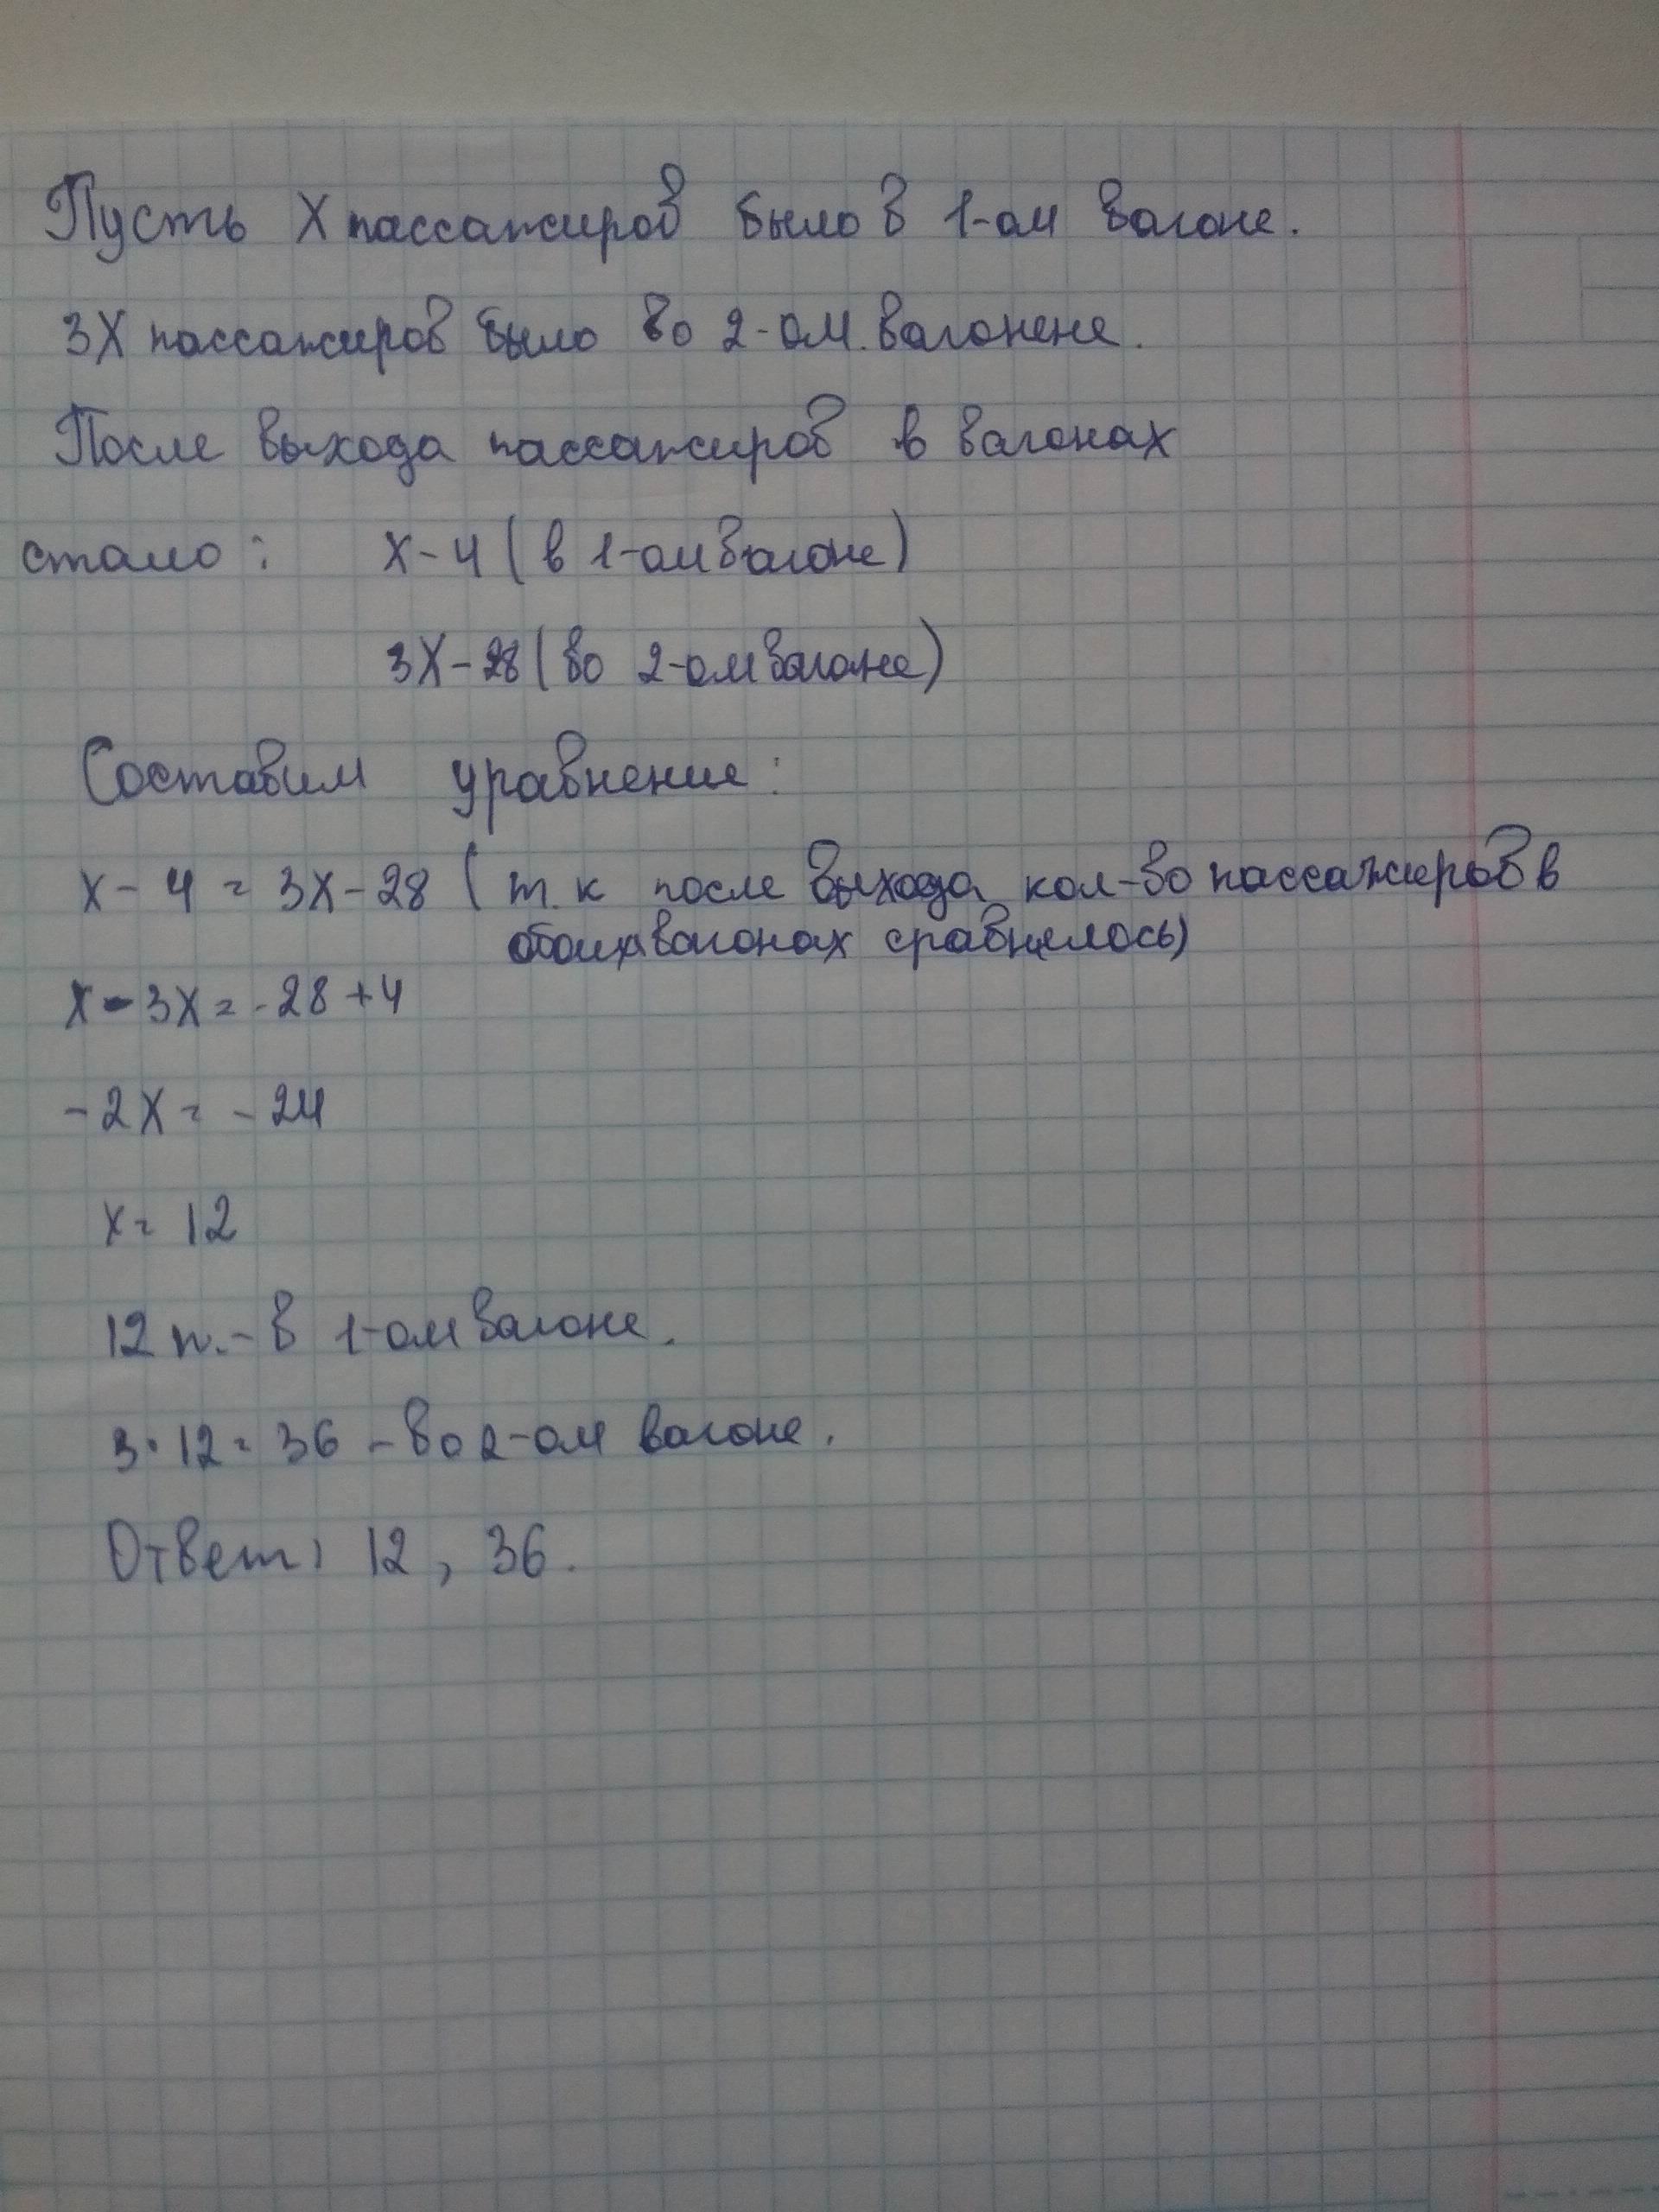 Пусть X пассажиров было в 1-ом вагоне.
3X пассажиров было во 2-ом вагонене.
После выхода пассажиров в вагонах
стало: X-4 (в 1-ом вагоне)
3X-28 (во 2-ом вагоне)
Составим уравнение:
X-4=3X-28 (т.к после выхода кол-во пассажиров в
обоих вагонах сравнялось)
X-3X=-28+4
-2X=-24
X=12
12 п.-в 1-ом вагоне.
3·12=36 -во 2-ом вагоне.
Ответ: 12, 36.